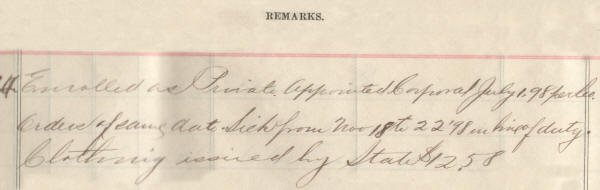 REMARKS.
Enrolled as Private. Appointed Corporal July 1. 98 per Co.
Orders of same date. Sick from Nov 18 to 22 '98 in line of duty.
Clothing issued by State $12.58